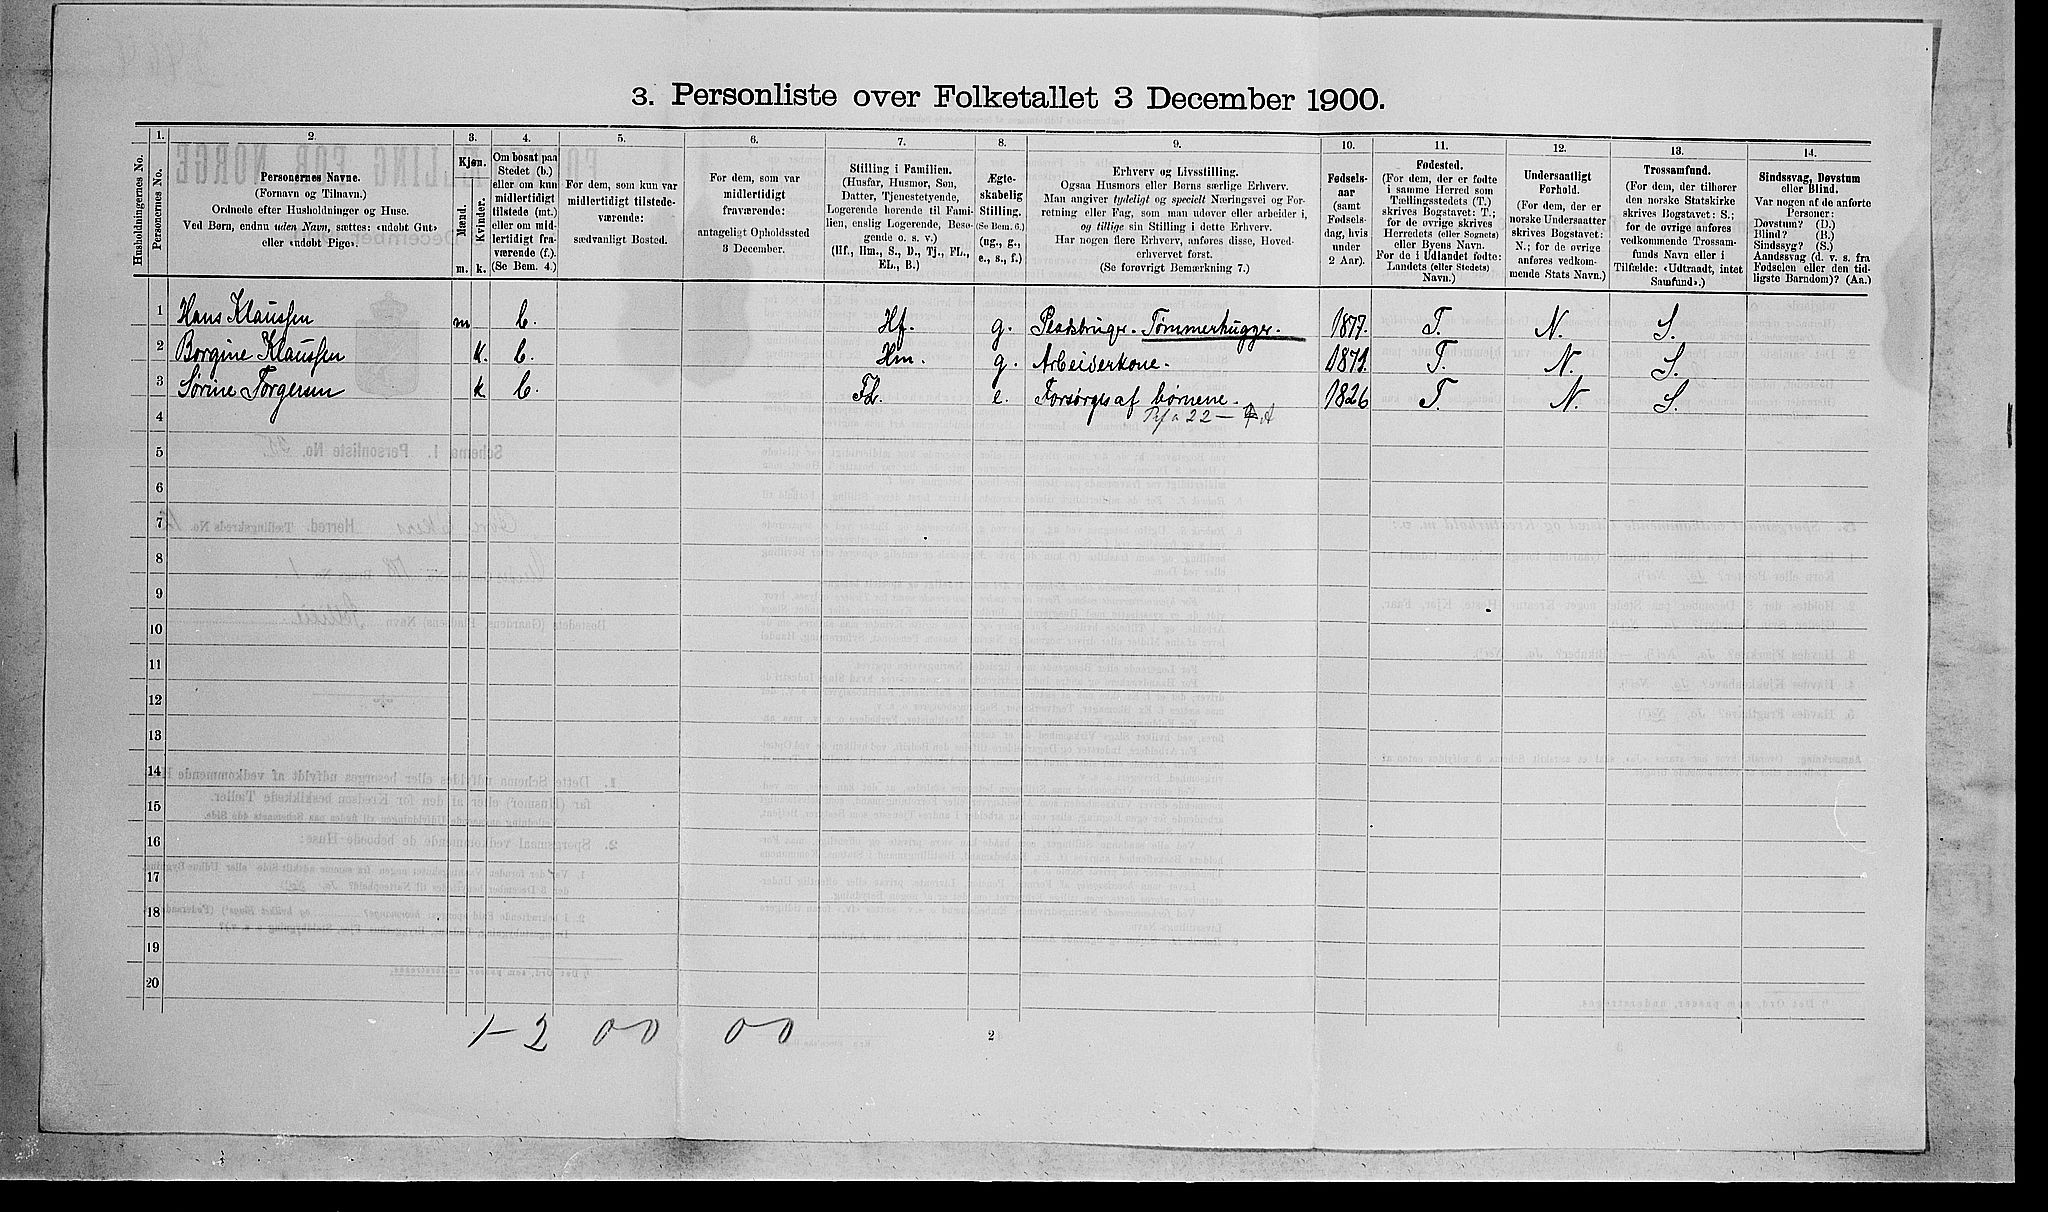 3. Personliste over Folketallet 3 December 1900.
1. 2. 3. 4. 5. 6. 7. 8. 9. 10. 11. 12. 13. 14.
Husholdningernes No.
Personernes No.
Personernes Navne.
(Fornavn og Tilnavn.)
Ordnede efter Husholdninger og Huse.
Ved Børn, endnu uden Navn, sættes: «udøbt Gut»
eller «udøbt Pige».
Kjøn.
Mænd.
Kvinder.
m. k.
Om bosat paa
Stedet (b.)
eller om kun
midlertidigt
tilstede (mt.)
eller om mid-
lertidigt fra-
værende (f.).
(Se Bem. 4.)
For dem, som kun var
midlertidigt tilstede-
værende:
sædvanligt Bosted.
For dem, som var
midlertidigt
fraværende:
antageligt Opholdssted
3 December.
Stilling i Familien.
(Husfar, Husmor, Søn,
Datter, Tjenestetyende,
Logerende hørende til Fami-
lien, enslig Logerende, Besø-
gende o. s. v.)
(Hf., Hm., S., D., Tj., FL.,
EL., B.)
Ægte-
skabelig
Stilling.
(Se Bem. 6.)
(ug., g.,
e., s., f.)
Erhverv og Livsstilling.
Ogsaa Husmors eller Børns særlige Erhverv.
Man angiver tydeligt og specielt Næringsvei og For-
retning eller Fag, som man udøver eller arbeider i,
og tillige sin Stilling i dette Erhverv.
Har nogen flere Erhverv, anføres disse, Hoved-
erhvervet først.
(Se forøvrigt Bemærkning 7.)
Fødsels-
aar
(samt
Fødsels-
dag, hvis
under
2 Aar).
Fødested.
(For dem, der er fødte
i samme Herred som
Tællingsstedets (T.)
skrives Bogstavet: T.;
for de øvrige skrives
Herredets (eller Sognets)
eller Byens Navn.
For de i Udlandet fødte:
Landets (eller Stedets)
Navn.)
Undersaatligt
Forhold.
(For dem, der er
norske Undersaatter
skrives Bogstavet:
N.; for de øvrige
anføres vedkom-
mende Stats Navn.)
Trossamfund.
(For dem, der tilhører
den norske Statskirke
skrives Bogstavet: S.;
for de øvrige anføres
vedkommende Trossam-
funds Navn eller i
Tilfælde: «Udtraadt, intet
Samfund».)
Sindssvag, Døvstum
eller Blind.
Var nogen af de anførte
Personer:
Døvstum? (D.)
Blind? (B.)
Sindssyg? (S.)
Aandssvag (d. v. s. fra
Fødselen eller den tid-
ligste Barndom)? (Aa.)
1 Hans Klaussen m b. Hf. g. Pladsbruger. Tømmerhugger. 1877. T. N. S.
2 Borgine Klaussen k. b. Hm. g. Arbeiderkone. 1873. T. N. S.
3 Sørine Torgersen k b. FL. e. Forsørges af børnene. 1826 T. N. S.
4
5
6
7
8
9
10
11
12
13
14
15
16
17
18
19
20
1-2 00 00
2